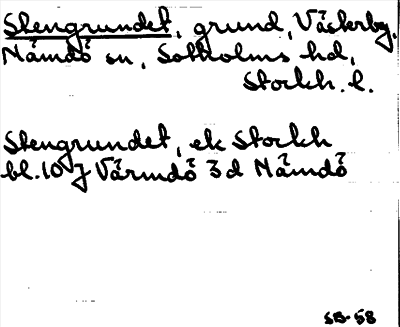 Stengrundet, grund, Västerby,
Nämdö sn, Sotholms hd,
Stockh. l.
Stengrundet, ek Stockh
bl. 10 J Värmdö 3d Nämdö
SB-58